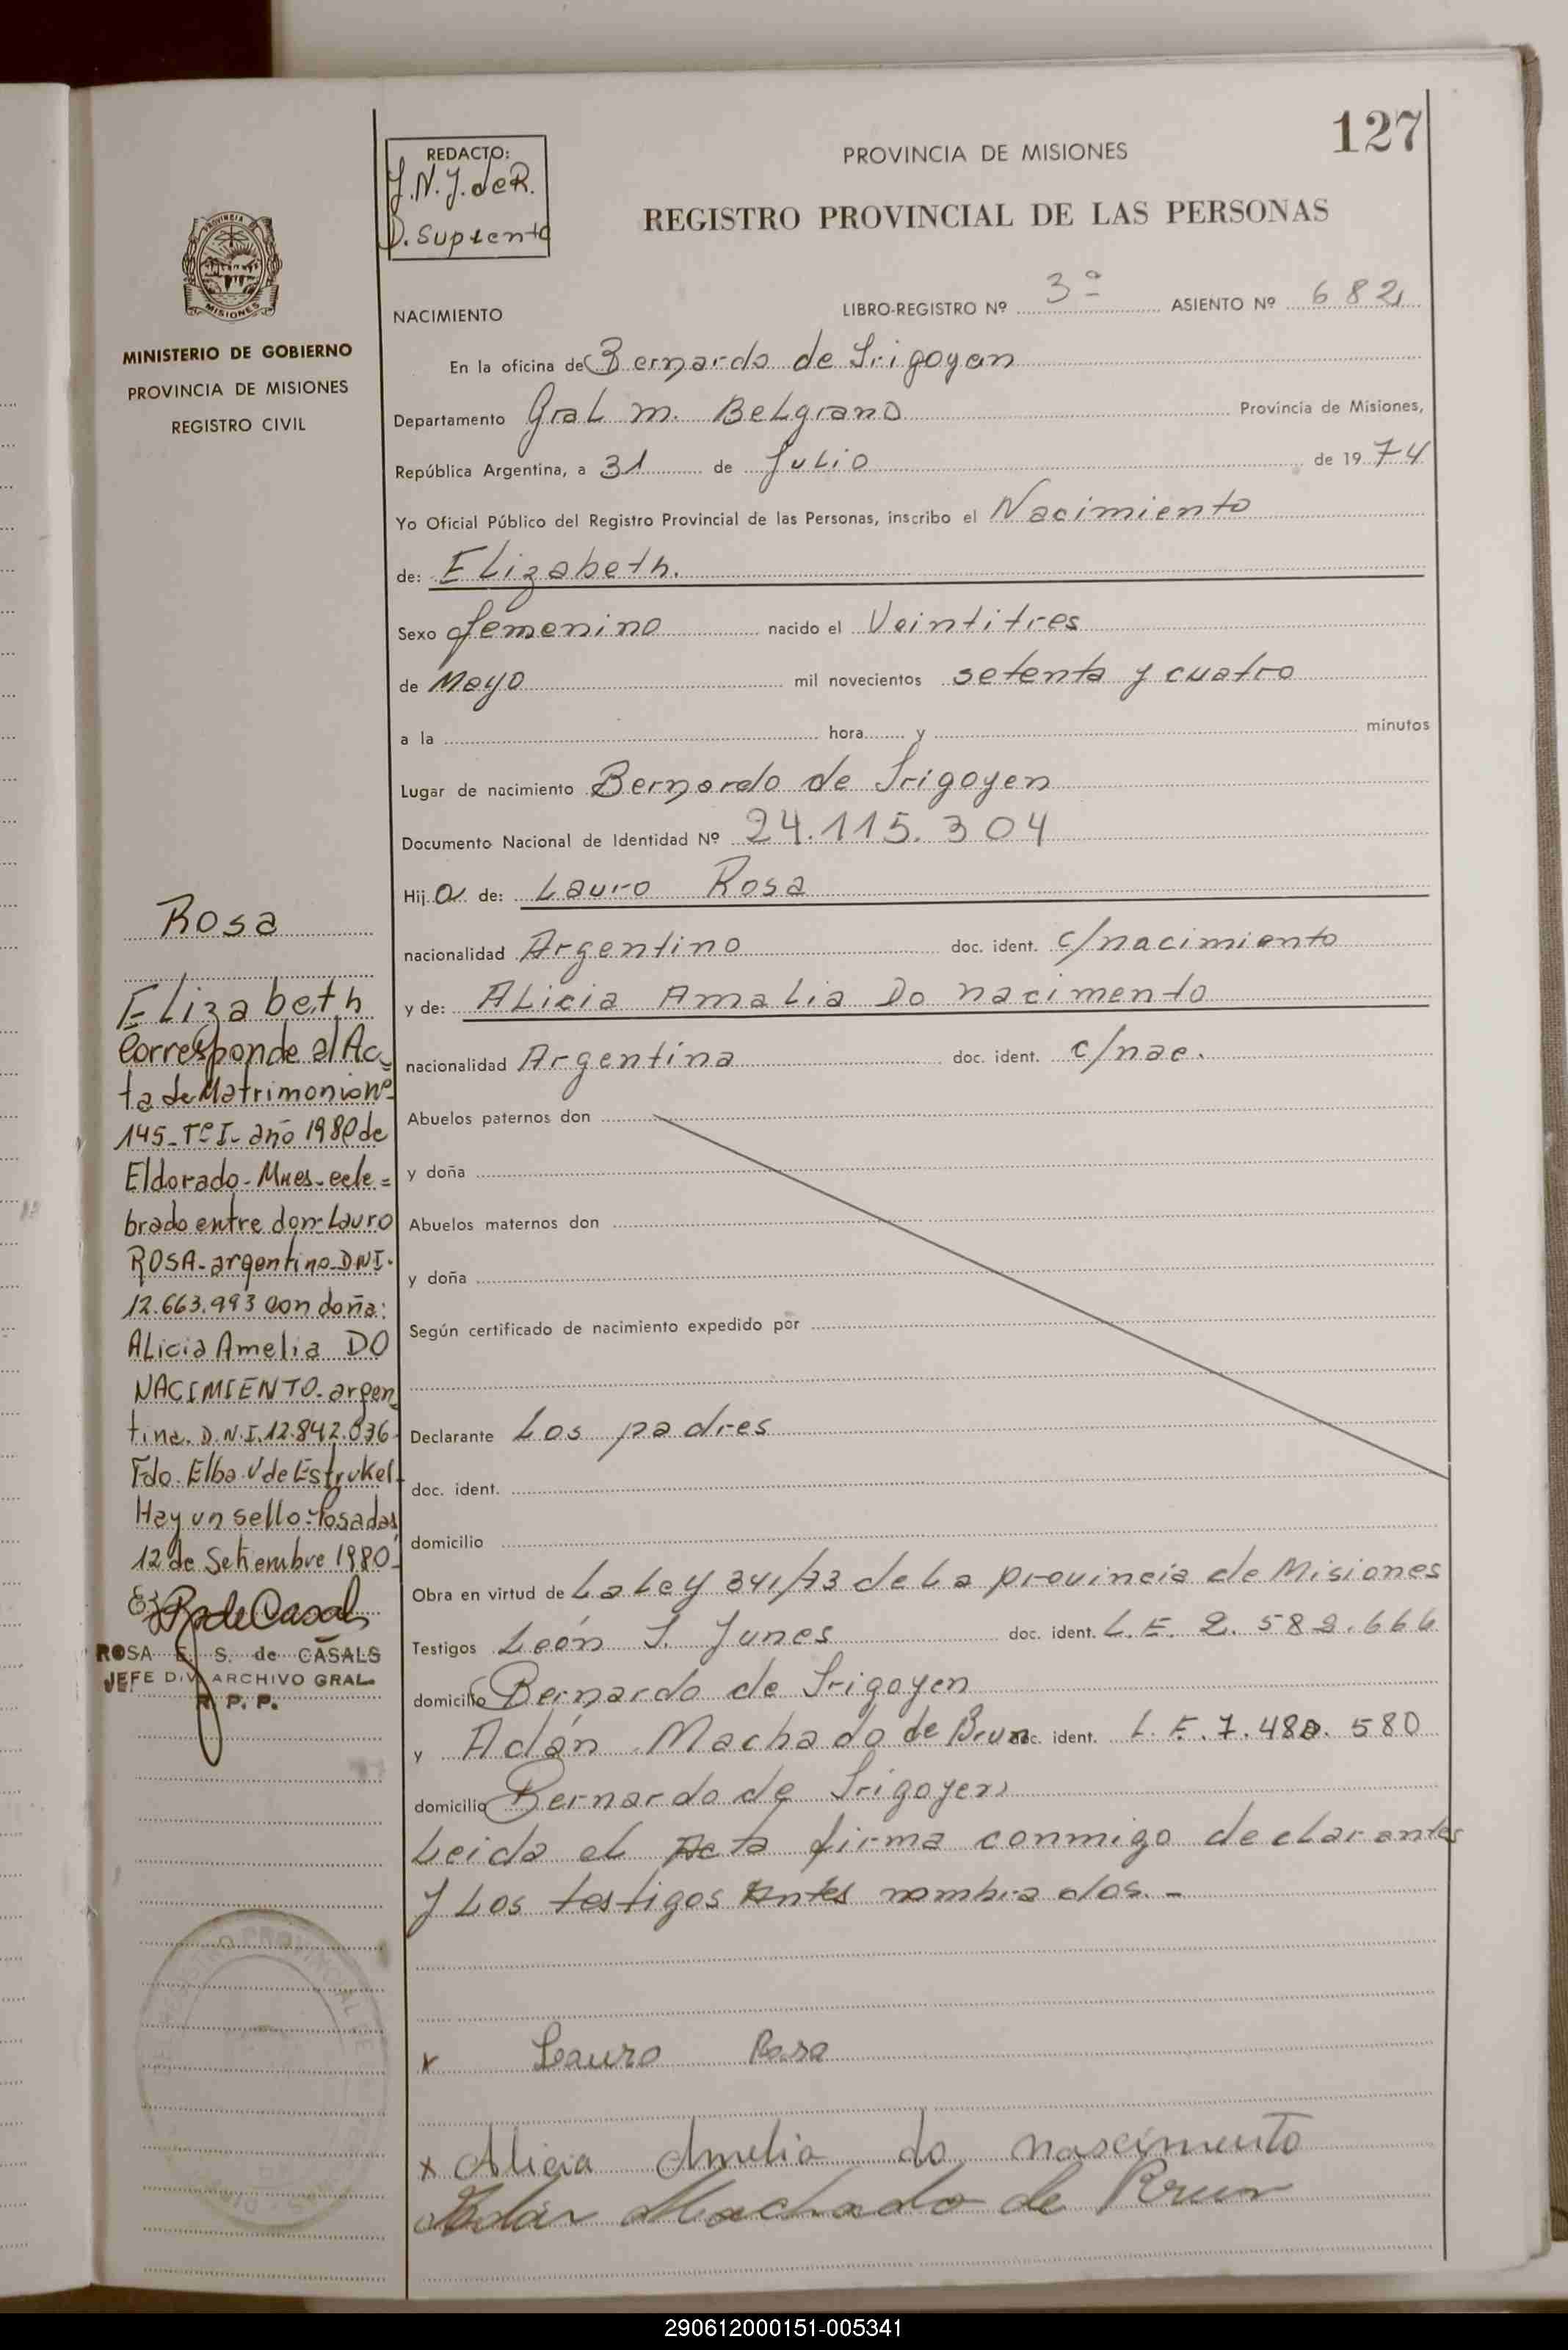 127
REDACTO:
J.N.J. de R.
D. Suplente
PROVINCIA DE MISIONES
REGISTRO PROVINCIAL DE LAS PERSONAS
PROVINCIA
MISIONES
MINISTERIO DE GOBIERNO
PROVINCIA DE MISIONES
REGISTRO CIVIL
NACIMIENTO LIBRO-REGISTRO Nº 3º ASIENTO Nº 682
En la oficina de Bernardo de Irigoyen
Departamento Gral m. Belgrano Provincia de Misiones,
República Argentina, a 31 de Julio de 1974
Yo Oficial Público del Registro Provincial de las Personas, inscribo el Nacimiento
de: Elizabeth.
Sexo femenino nacido el Veintitres
de Mayo mil novecientos setenta y cuatro
a la hora y minutos
Lugar de nacimiento Bernardo de Irigoyen
Documento Nacional de Identidad Nº 24.115.304
Hija de: Lauro Rosa
nacionalidad Argentino doc. ident. c/nacimiento
y de: Alicia Amalia Do nacimento
nacionalidad Argentina doc. ident. c/nac.
Abuelos paternos don
y doña
Abuelos maternos don
y doña
Según certificado de nacimiento expedido por
Declarante Los padres
doc. ident.
domicilio
Obra en virtud de La Ley 341/73 de La provincia de Misiones
Testigos León J. Junes doc. ident. L.E. 2.582.666
domicilio Bernardo de Irigoyen
y Adán Machado de Brun doc. ident. L.E. 7.480.580
domicilio Bernardo de Irigoyen
Leida el Acta firma conmigo declarantes
y Los testigos Antes nombrados.-
x Lauro Rosa
x Alicia Amelia do nascimento
Adán Machado de Brun
Rosa
Elizabeth
Corresponde al Ac-
ta de Matrimonio Nº
145-Tº I- año 1980 de
Eldorado-Mnes-cele=
brado entre don-Lauro
ROSA-argentino-D.N.I.
12.663.993 con doña:
Alicia Amelia DO
NACIMIENTO-argen
tina. D.N.I.12.842.036-
Fdo. Elba V de Estrukel-
Hay un sello-Posadas,
12 de Setiembre 1980-
R de Casals
ROSA E. S. de CASALS
JEFE DIV. ARCHIVO GRAL.
R. P. P.
290612000151-005341